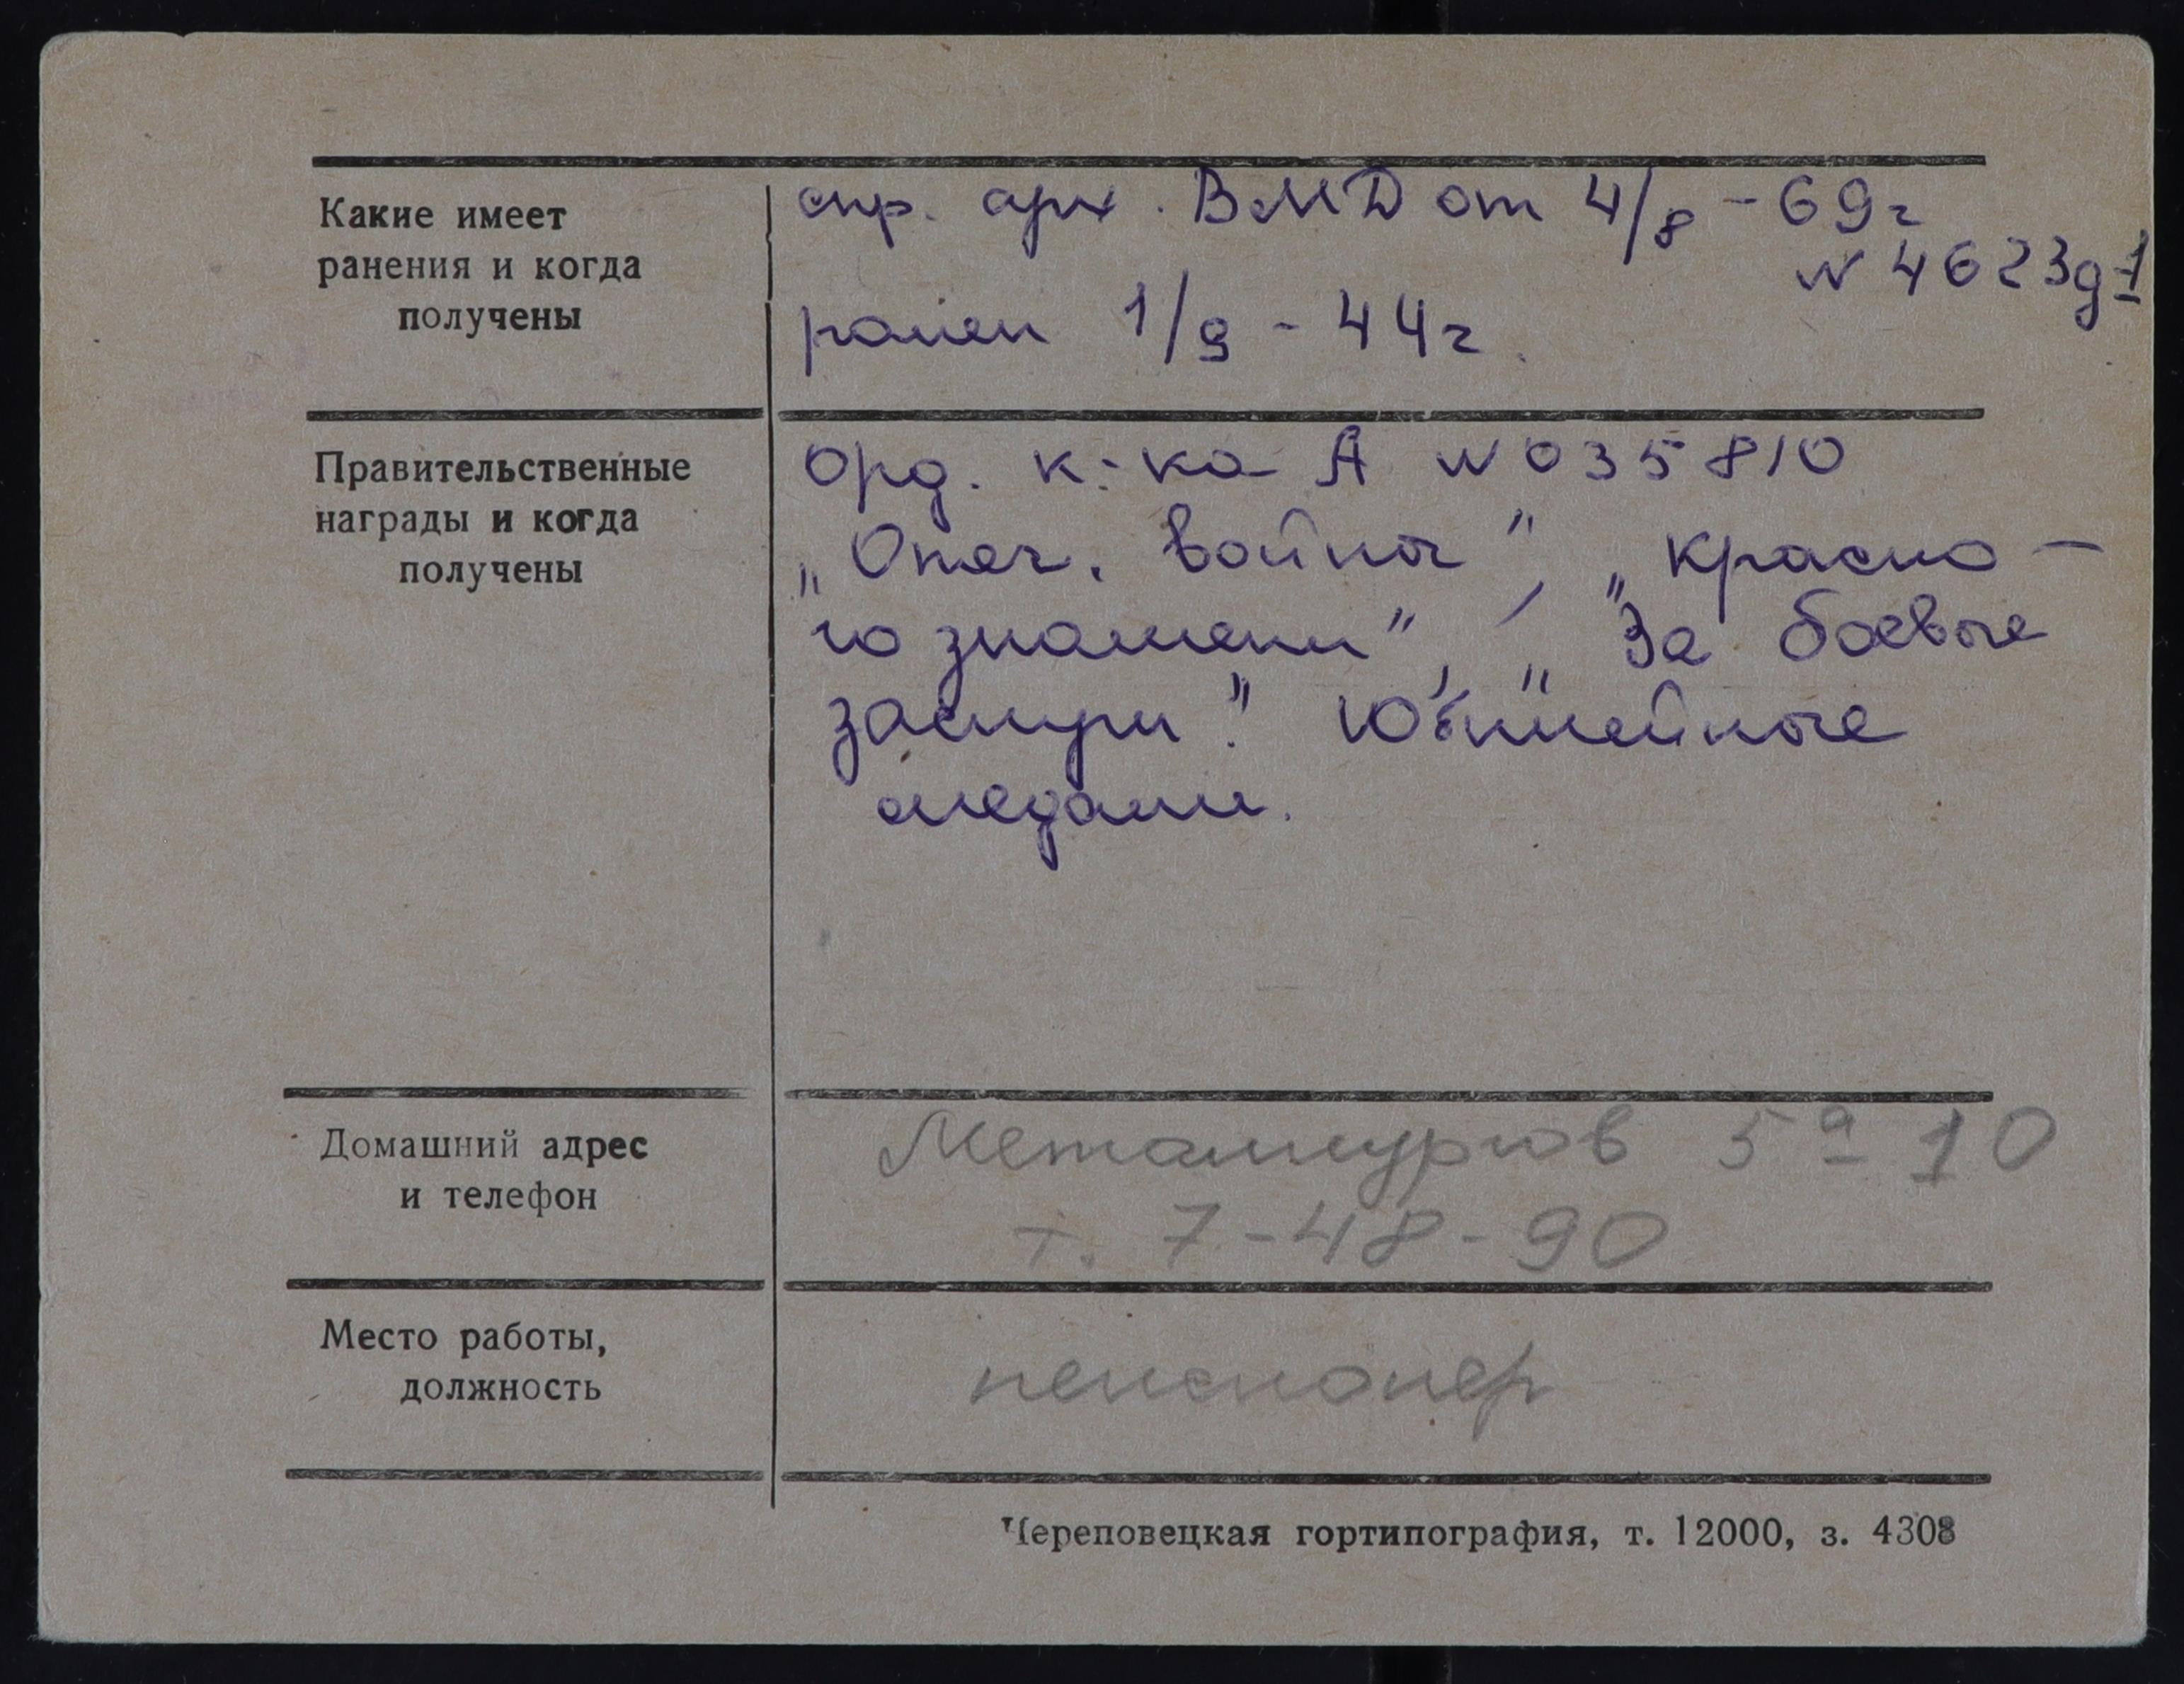 Какие имеет
ранения и когда
получены
спр. арх. ВМД от 4/8 - 69г
N 4623д-1
ранен 1/9 - 44г.
Правительственные
награды и когда
получены
Орд. к-ка А N 035810
„Отеч. войны”, „Красно-
го знамени”, „За боевые
заслуги”. Юбилейные
медали.
Домашний адрес
и телефон
Металлургов 5а 10
т. 7-48-90
Место работы,
должность
пенсионер
Череповецкая гортипография, т. 12000, з. 4308